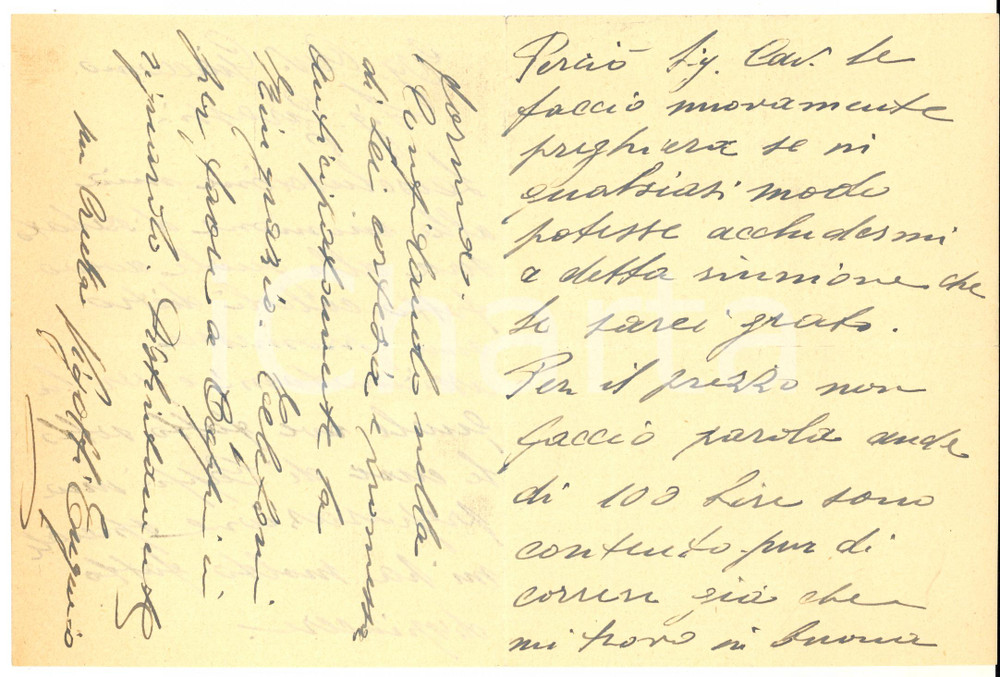 Perciò Sig. Cav. Le
faccio nuovamente
preghiera se in
qualsiasi modo
potesse accludermi
a detta riunione che
Le sarei grato.
Per il prezzo non
faccio parola anche
di 100 Lire sono
contento pur di
correre già che
mi trovo in buona
forma.
Confidando nella
di Lei cortesia e promessa
anticipatamente La
ringrazio. Telefoni
per favore a
riguardo. Distintamente
Eugenio
iCharta